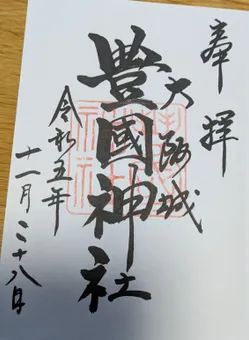 奉拝
大阪城
豊國神社
令和五年
十一月二十八日